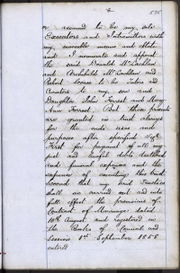 or assumed to be my sole
Executors and Intromitters with
my moveable means and estate
And I nominate and appoint
the said Donald McLachlan
and Archibald McLachlan and
Robert to be Tutors and
Curators to my son and
Daughter John Forrest and Mary
Ann Forrest But these presents
are granted in trust always
for the ends uses and
purposes after specified First
for payment of all my
just and lawful debts deathbed
and funeral expenses and the
expenses of executing this trust
Second that my said Trustees
shall see carried out and into
full effect the provisions of
Contract of Marriage dated
August and registered in
the Books of Council and
Session September 1858